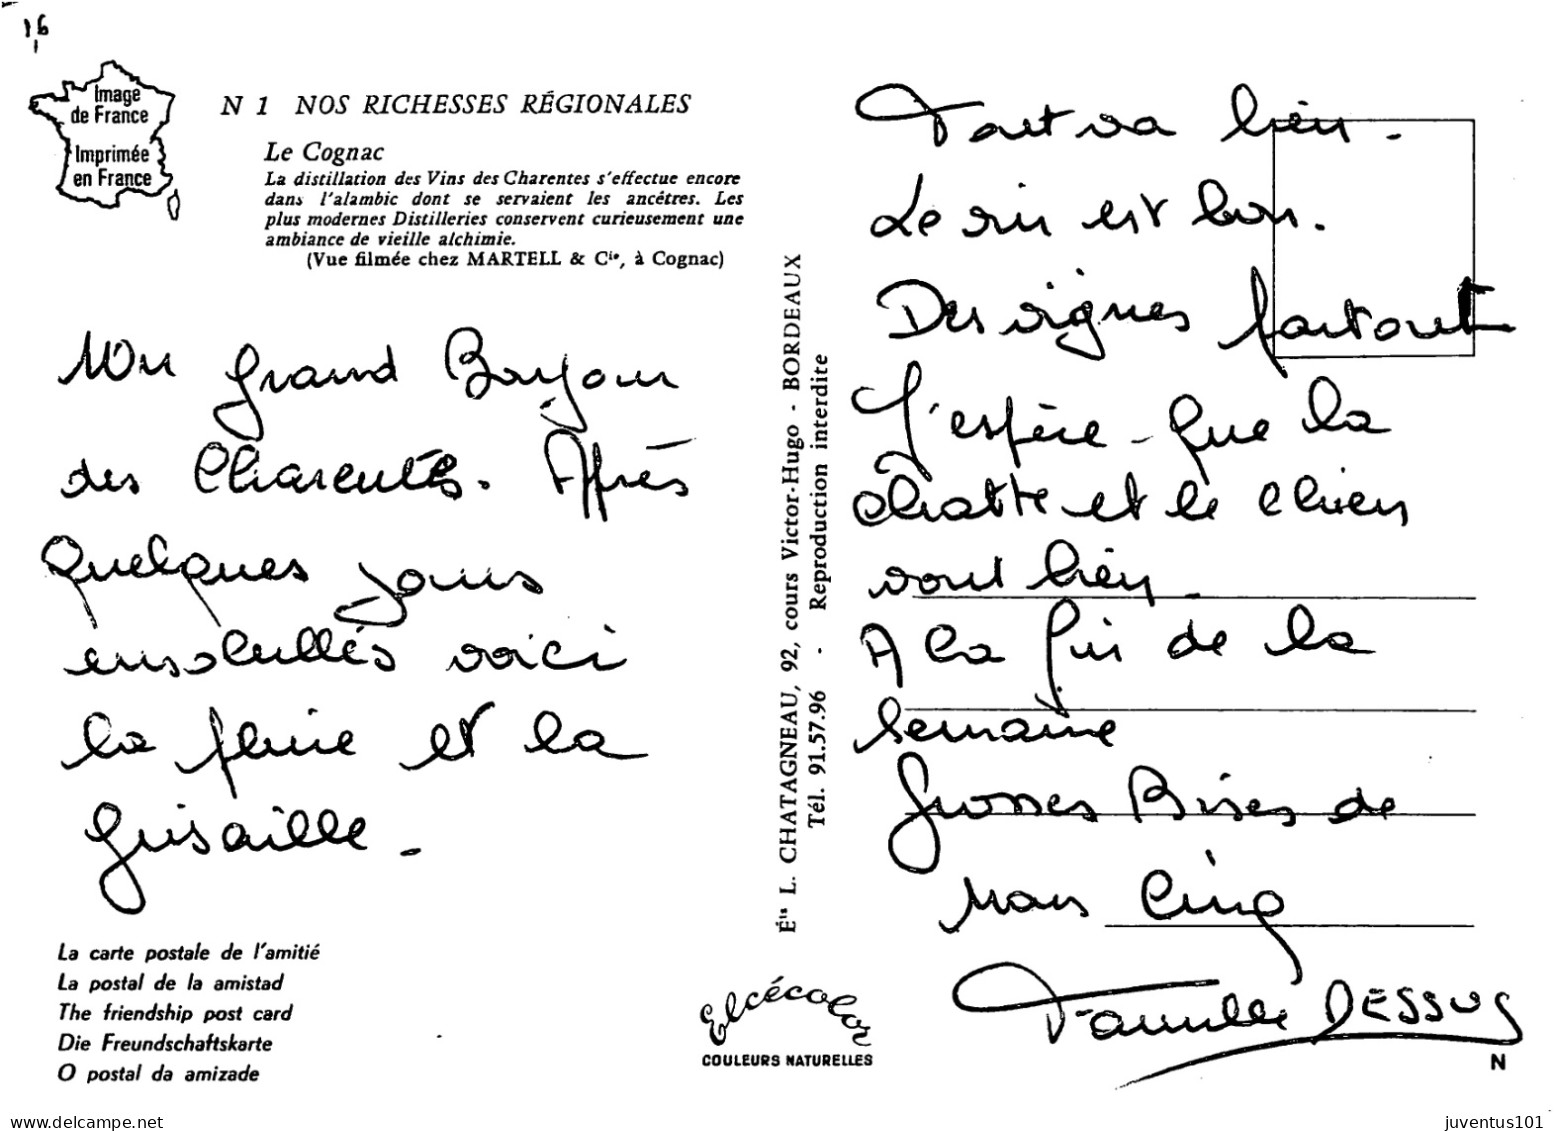 16
Image
de France
Imprimée
en France
N 1 NOS RICHESSES RÉGIONALES
Le Cognac
La distillation des Vins des Charentes s'effectue encore
dans l'alambic dont se servaient les ancêtres. Les
plus modernes Distilleries conservent curieusement une
ambiance de vieille alchimie.
(Vue filmée chez MARTELL & Cie, à Cognac)
Un grand Bonjour
des Charentes. Après
quelques jours
ensoleillés voici
la pluie et la
grisaille.
La carte postale de l'amitié
La postal de la amistad
The friendship post card
Die Freundschaftskarte
O postal da amizade
Éts L. CHATAGNEAU, 92, cours Victor-Hugo - BORDEAUX
Tél. 91.57.96 - Reproduction interdite
Elcécolor
COULEURS NATURELLES
Tout va bien.
Le vin est bon.
Des vignes partout
J'espère que la
chatte et le chien
vont bien.
A la fin de la
semaine
Grosses Bises de
nous cinq
Famille DESSUS
N
delcampe.net
juventus101